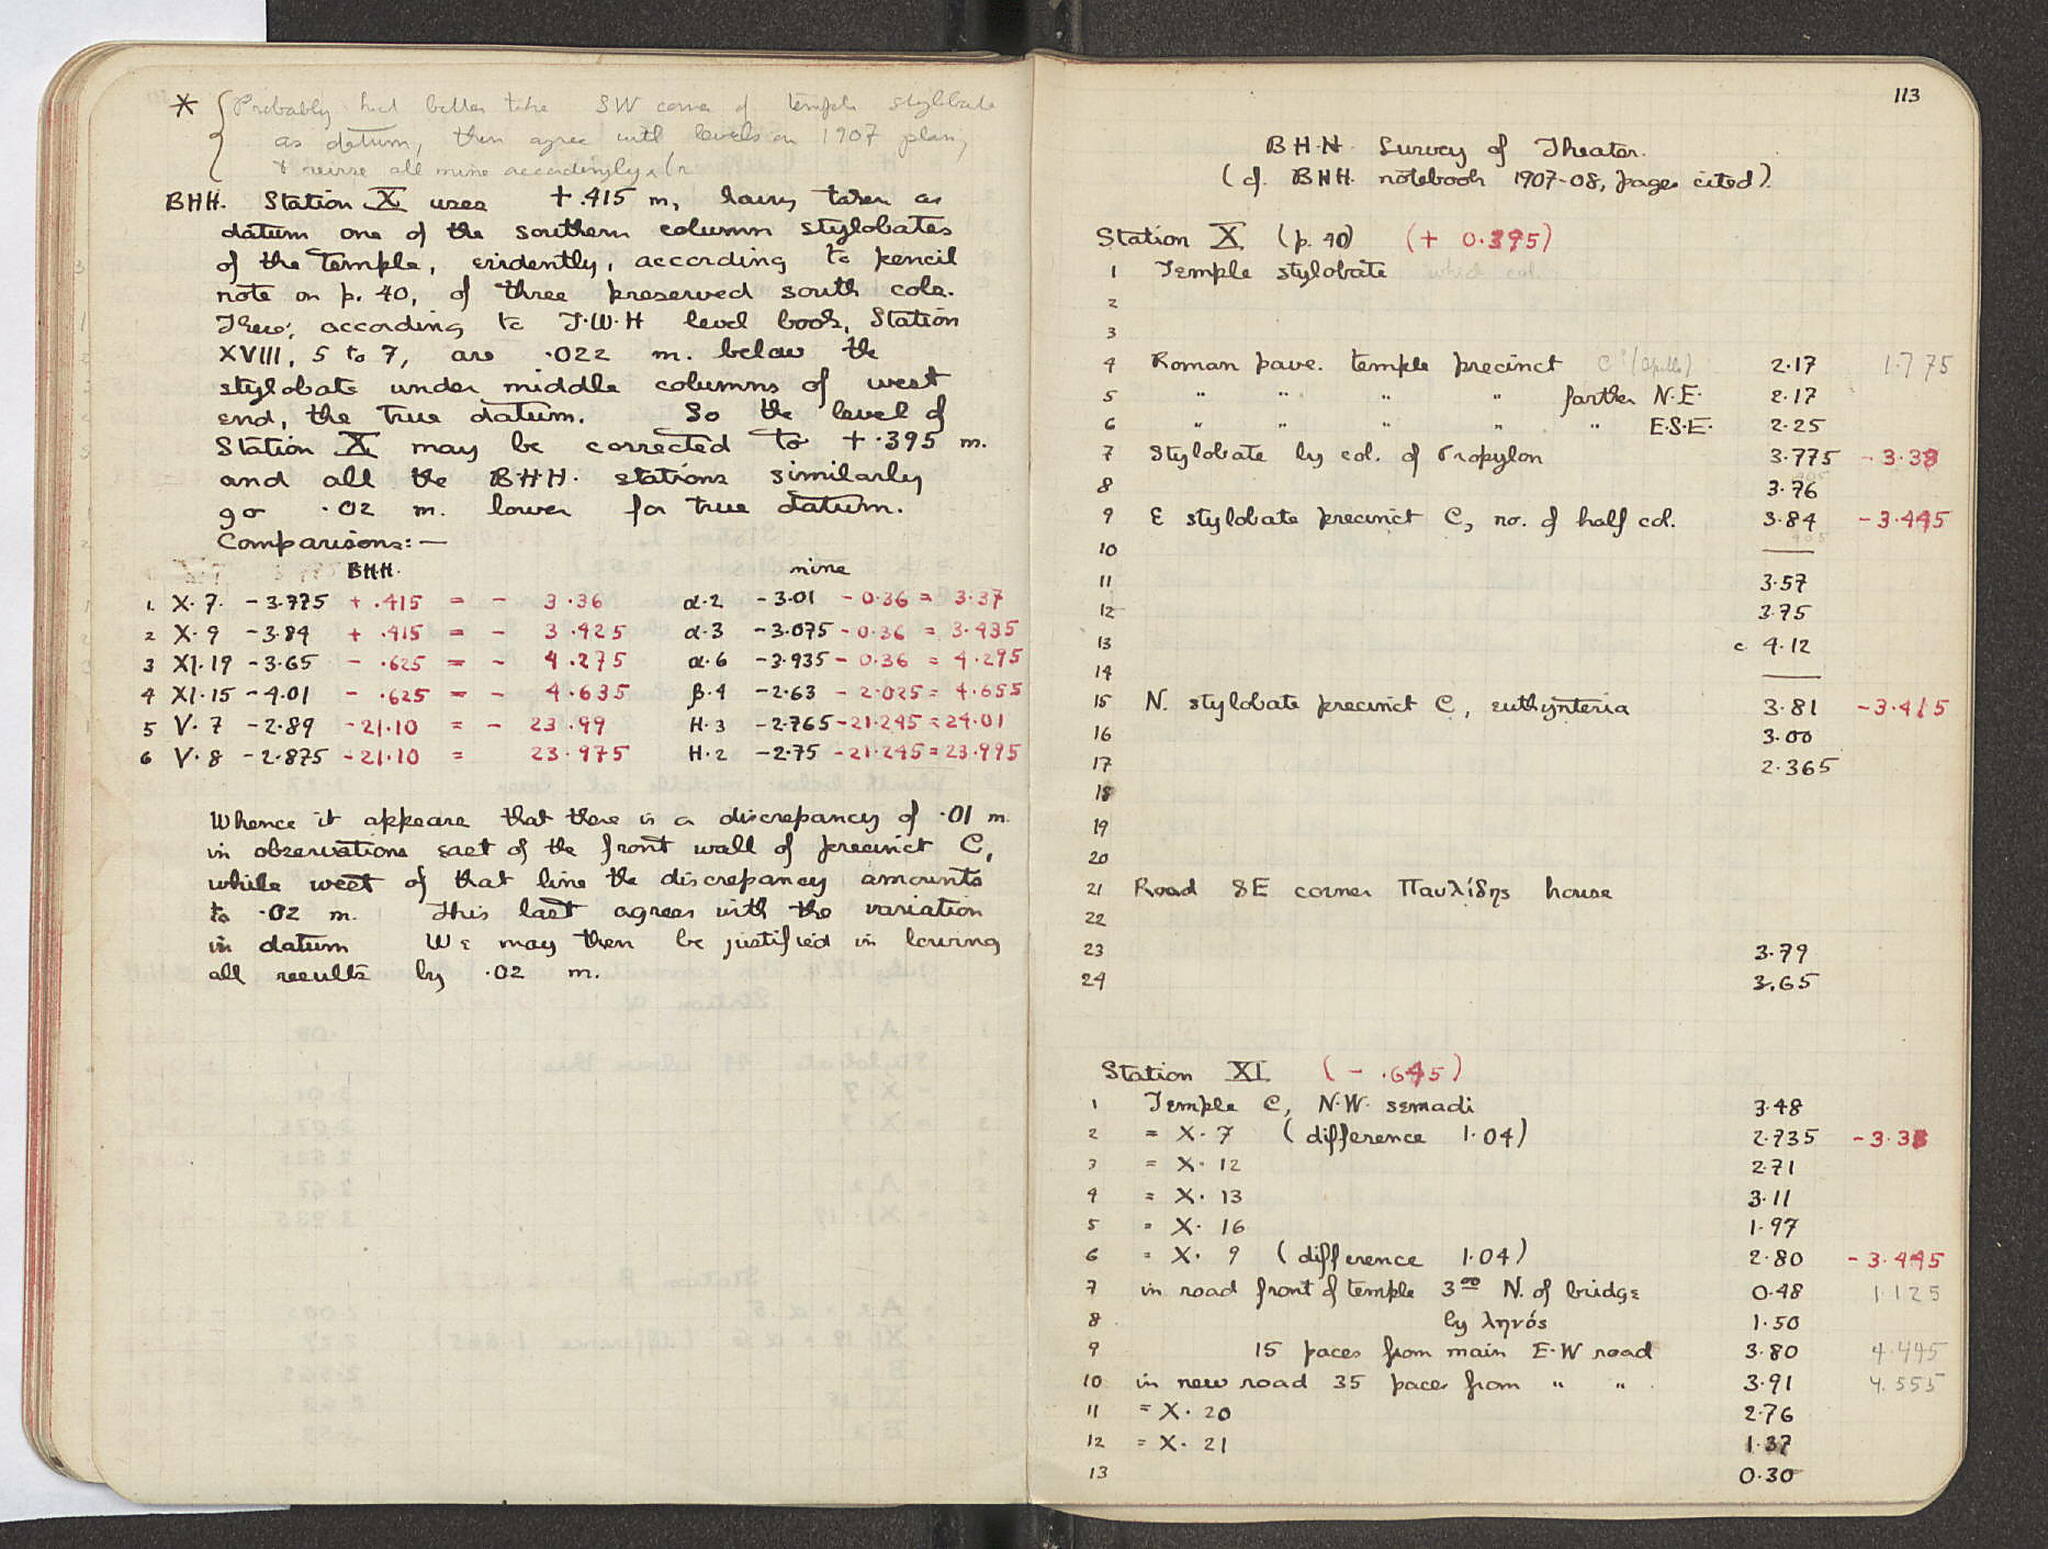 * { Probably had better take SW corner of temple stylobate
as datum, then agree with levels on 1907 plan,
& revise all mine accordingly.
BHH. Station X uses + .415 m, having taken as
datum one of the southern column stylobates
of the temple, evidently, according to pencil
note on p. 40, of three preserved south cols.
These, according to J.W.H level book, Station
XVIII, 5 to 7, are .022 m. below the
stylobate under middle columns of west
end, the true datum. So the level of
Station X may be corrected to + .395 m.
and all the B.H.H. stations similarly
go .02 m. lower for true datum.
Comparisons:—
BHH. mine
1. X.7. -3.775 + .415 = - 3.36 α.2 -3.01 - 0.36 = 3.37
2 X.9 -3.84 + .415 = - 3.425 α.3 -3.075 - 0.36 = 3.435
3 XI.19 -3.65 - .625 = - 4.275 α.6 -3.935 - 0.36 = 4.295
4 XI.15 -4.01 - .625 = - 4.635 β.4 -2.63 - 2.025 = 4.655
5 V.7 -2.89 -21.10 = - 23.99 H.3 -2.765 -21.245 = 24.01
6 V.8 -2.875 -21.10 = 23.975 H.2 -2.75 -21.245 = 23.995
Whence it appears that there is a discrepancy of .01 m.
in observations east of the front wall of precinct C,
while west of that line the discrepancy amounts
to .02 m. This last agrees with the variation
in datum We may then be justified in lowering
all results by .02 m.
113
B.H.H. Survey of Theater.
(cf. BHH. notebook 1907-08, pages cited).
Station X (p. 40) (+ 0.395)
1 Temple stylobate which col.
2
3
4 Roman pave. temple precinct C 2.17 1.775
5 " " " " farther N.E. 2.17
6 " " " " " E.S.E. 2.25
7 Stylobate by col. of Propylon 3.775 - 3.38
8 3.76
9 E stylobate precinct C, no. of half col. 3.84 - 3.445
10 —
11 3.57
12 3.75
13 c 4.12
14 —
15 N. stylobate precinct C, euthynteria 3.81 - 3.415
16 3.00
17 2.365
18
19
20
21 Road SE corner Παυλίδης house
22
23 3.79
24 3.65
Station XI (- .645)
1 Temple C, N.W. semadi 3.48
2 = X.7 (difference 1.04) 2.735 - 3.38
3 = X.12 2.71
4 = X.13 3.11
5 = X.16 1.97
6 = X.9 (difference 1.04) 2.80 - 3.445
7 in road front of temple 3ᵒᵒ N. of bridge 0.48 1.125
8 by ληνός 1.50
9 15 paces from main E-W road 3.80 4.445
10 in new road 35 paces from " " 3.91 4.555
11 = X.20 2.76
12 = X.21 1.37
13 0.30